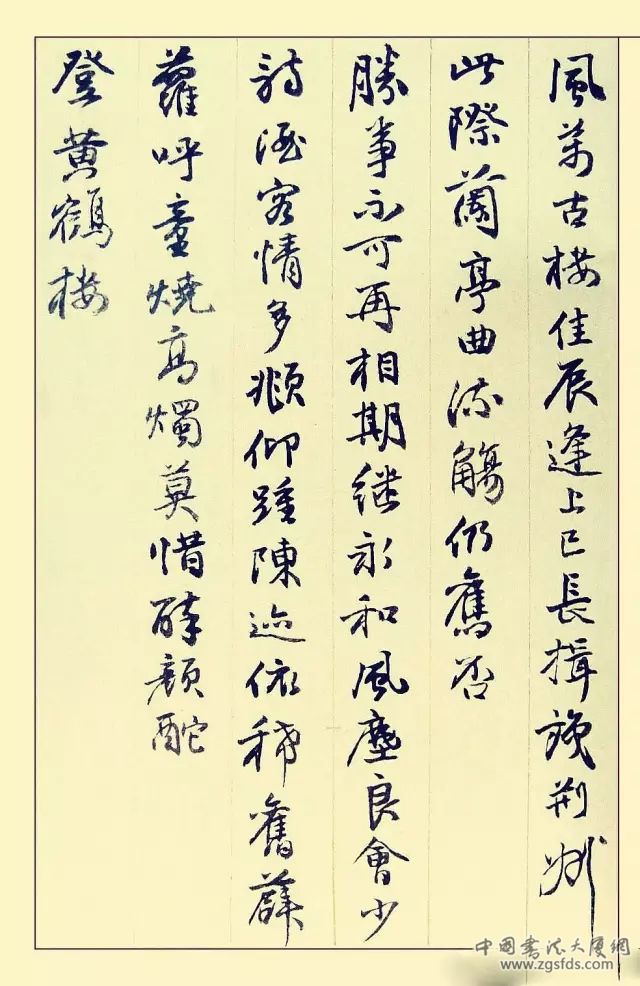 風萬古樓佳辰逢上巳長揖識荆州
此際蘭亭曲流觴仍舊否
勝事不可再相期继永和風塵良會少
詩酒客情多頫仰踵陳迹依稀舊薜
蘿呼童燒高燭莫惜醉顏酡
登黄鶴楼
中国书法大厦网
www.zgsfds.com